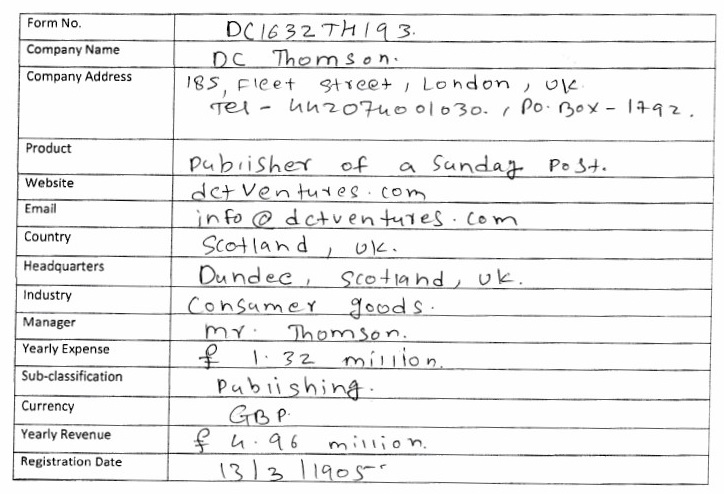 Form No. DC1632TH193.
Company Name DC Thomson.
Company Address 185, Fleet street, London, UK.
Tel - 442074001030., Po. Box - 1792.
Product Publisher of a Sunday Post.
Website dctVentures.com
Email info@dctventures.com
Country Scotland, UK.
Headquarters Dundee, Scotland, UK.
Industry Consumer goods.
Manager Mr. Thomson.
Yearly Expense £ 1.32 million.
Sub-classification Publishing.
Currency GBP.
Yearly Revenue £ 4.96 million.
Registration Date 13/3/1905